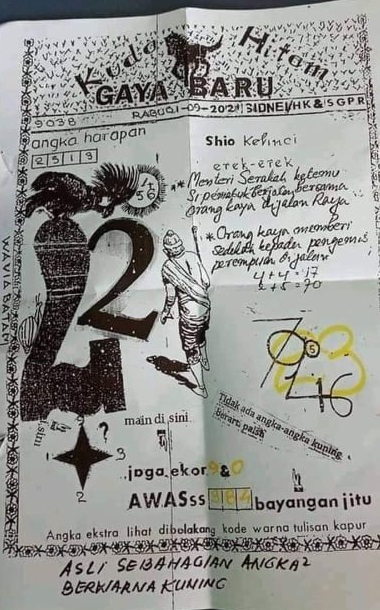 Kuda Hitam
GAYA BARU
RABU 01-09-2021 SIDNEI/HK & SGPR
9038
angka harapan
2 3 1 3
Shio Kelinci
erek-erek
* Menteri Serakah ketemu
Si pemabuk berjalan bersama
orang kaya dijalan Raya
* Orang kaya memberi
Sedekah kepada pengemis
perempuan di jalan
4+4=17
2+5=70
4
56
2
WAVIA BATAM
7
5
246
Tidak ada angka-angka kuning
berarti palsu
main di sini
?
1
3
2
joga ekor 9 & 0
AWASss 884 bayangan jitu
Angka ekstra lihat dibolakang kode warna tulisan kapur
ASLI SEBAHAGIAN ANGKA2
BERWARNA KUNING